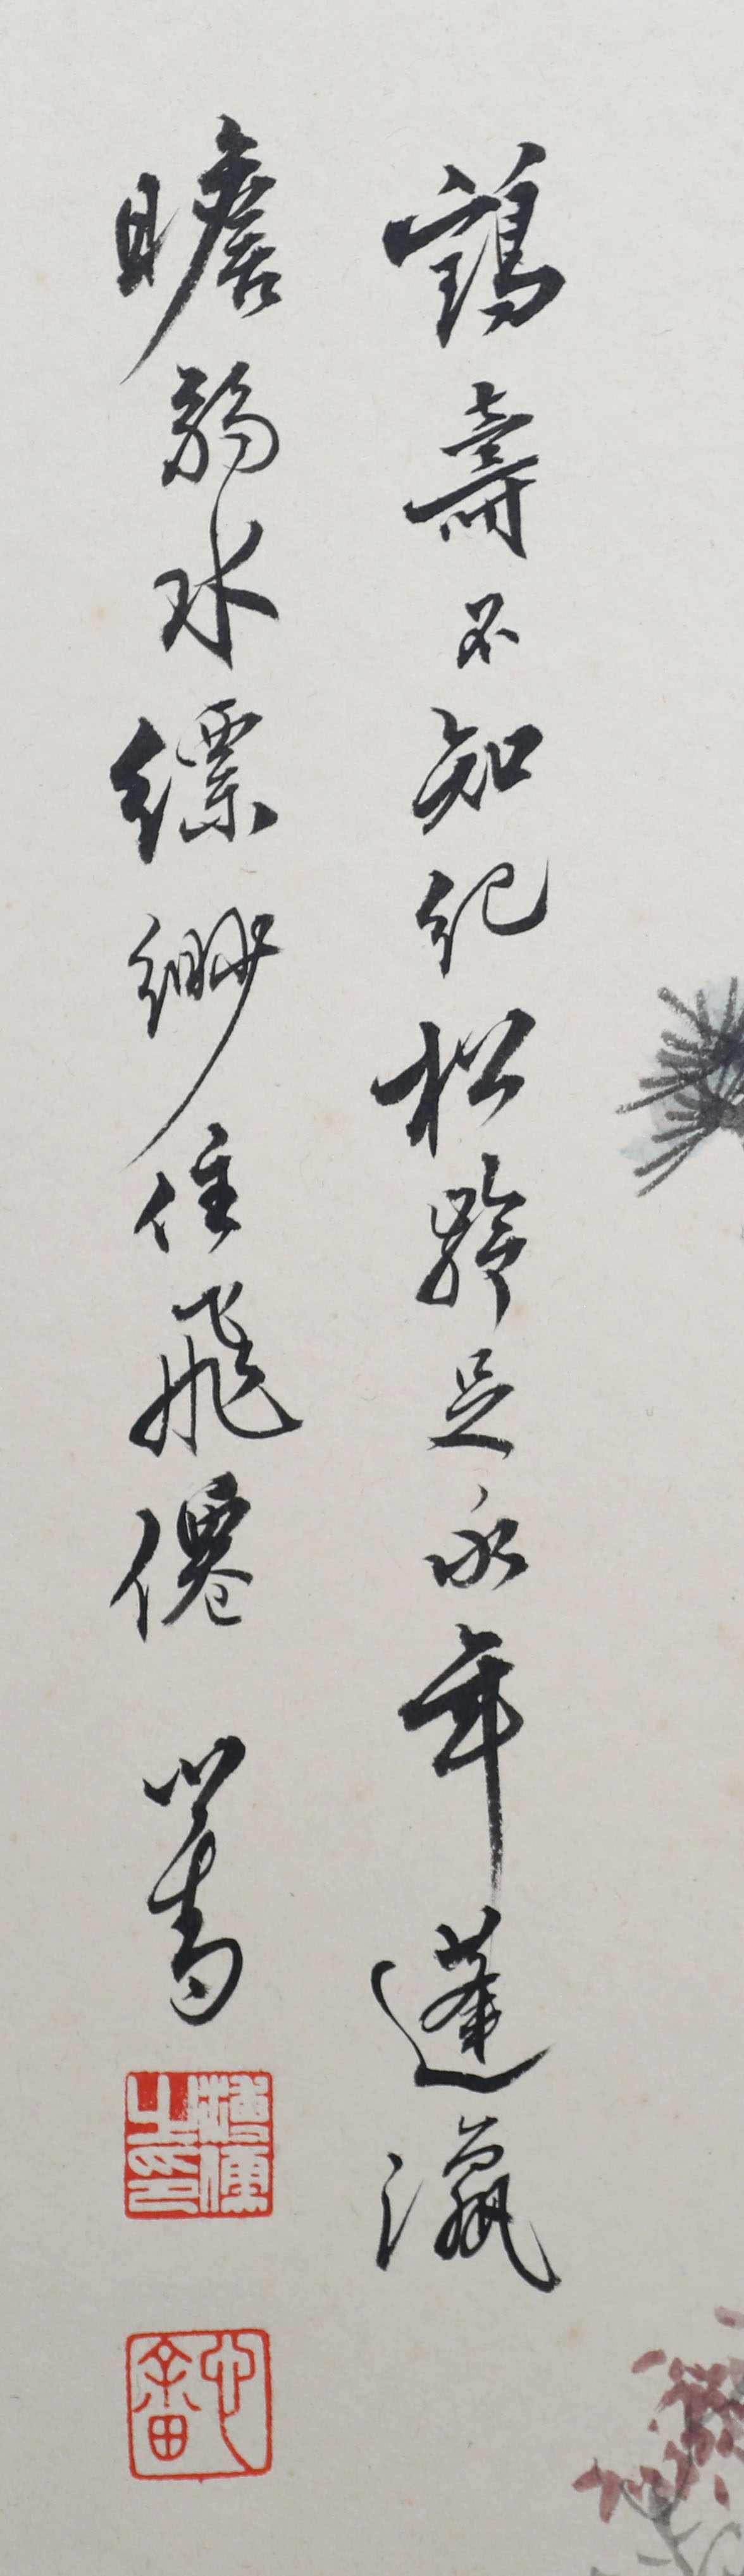 鶴壽不知紀松齡足永年蓬瀛
瞻弱水縹緲住飛僊 心畬
溥儒之印
心畬